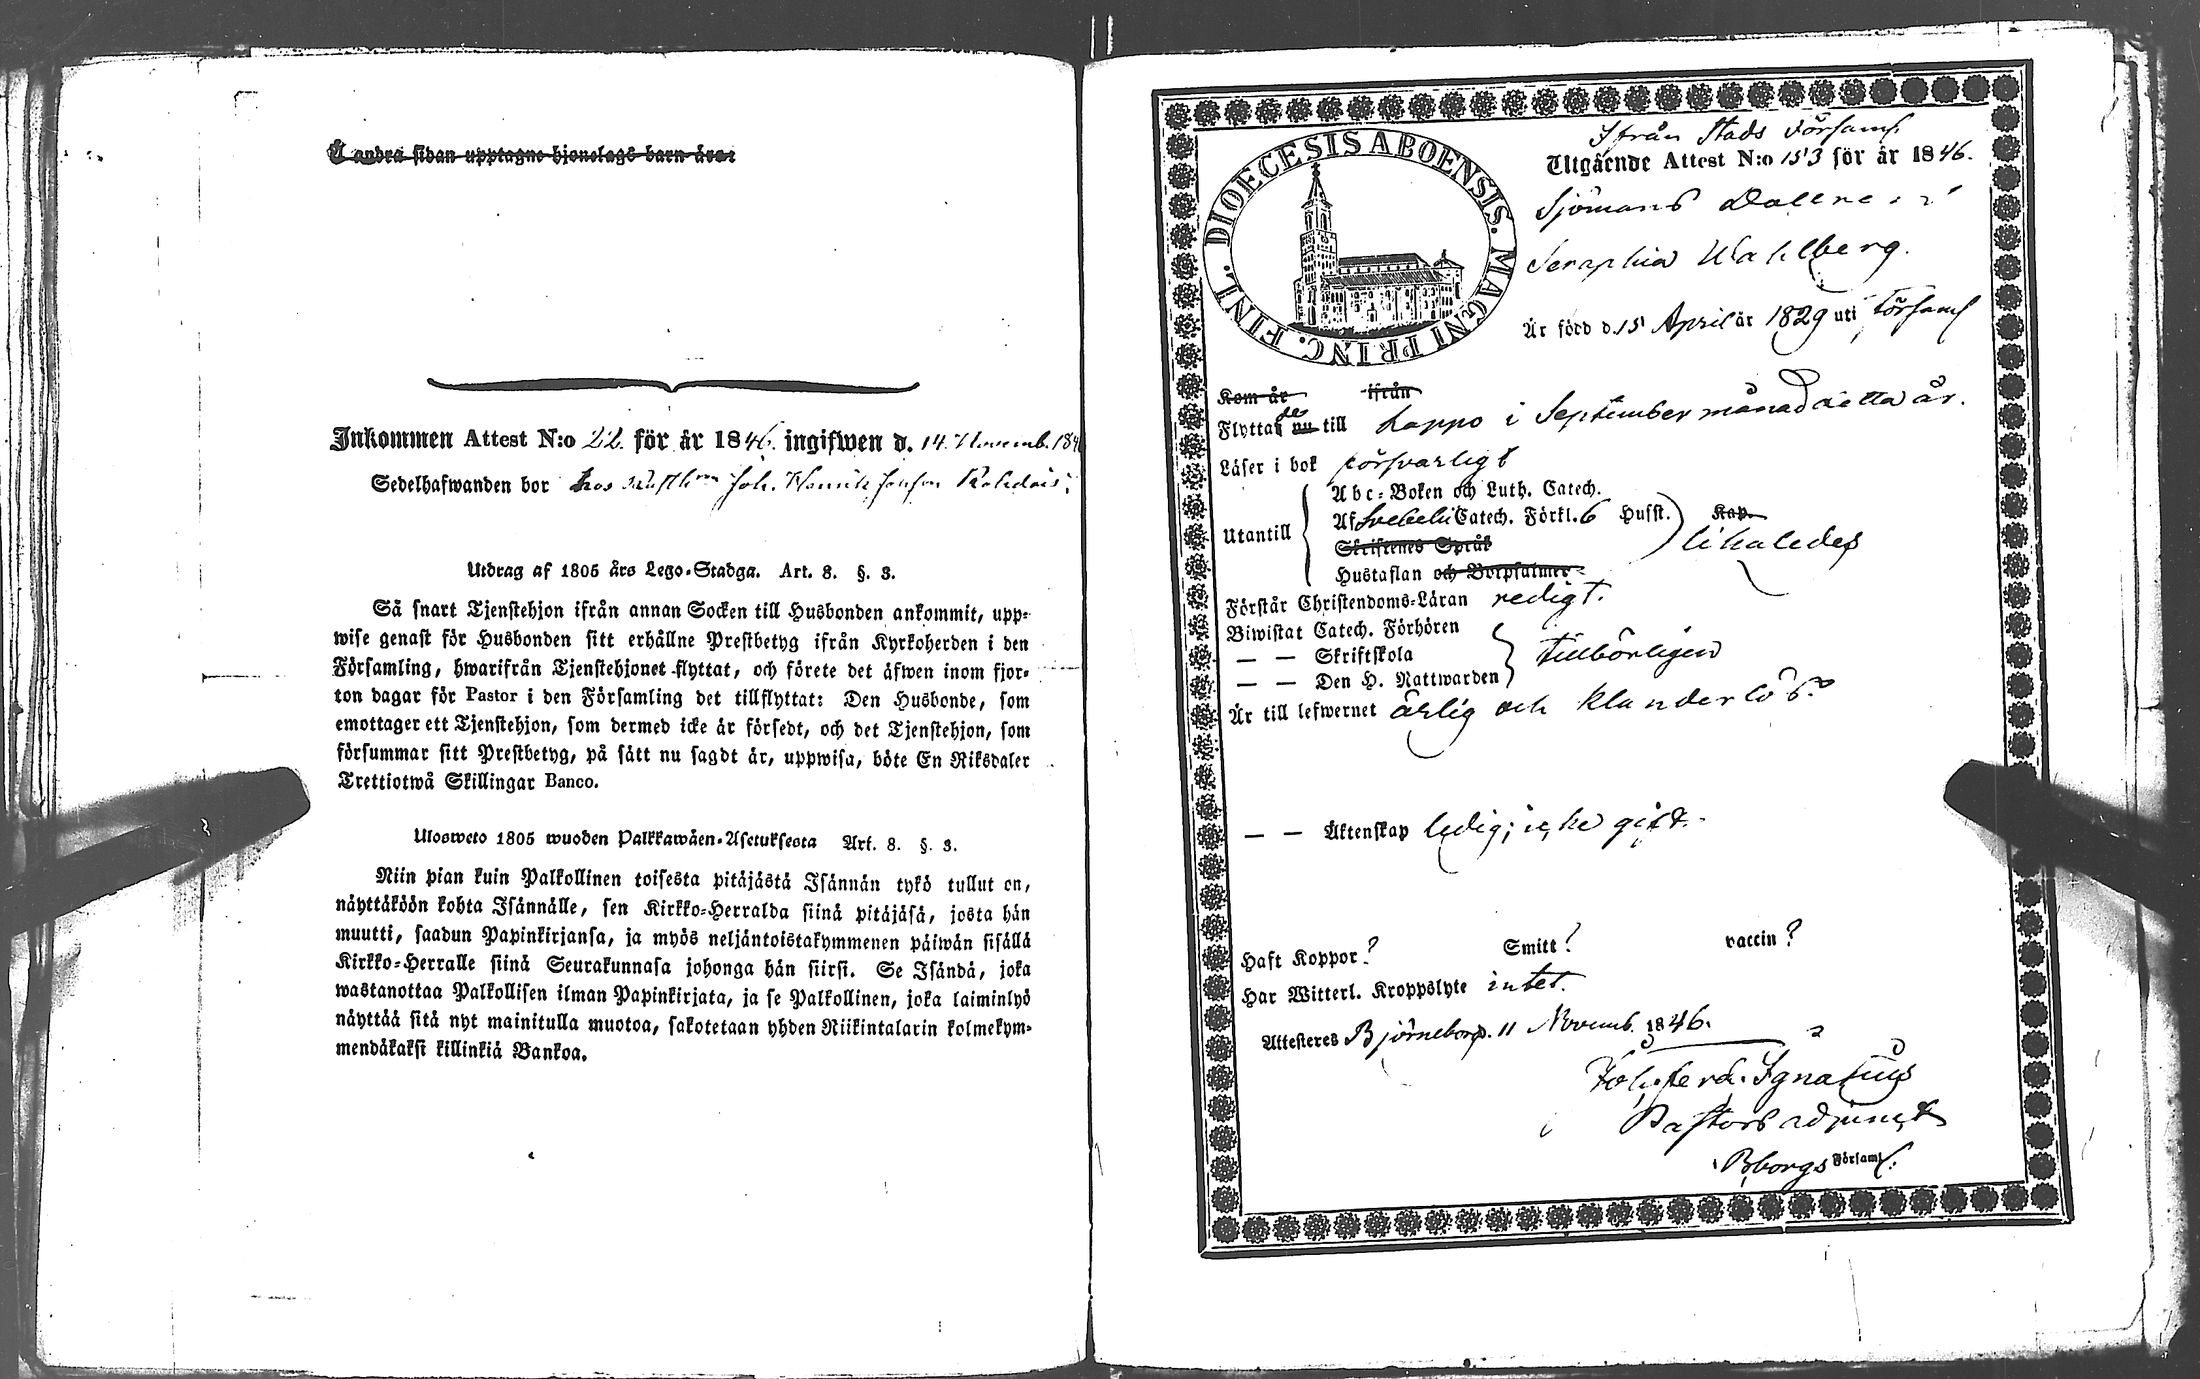 I andra sidan upptagne hjonelags barn äro:
Inkommen Attest N:o 22. för år 1846. ingifwen d. 14. Novemb. 184
Sedelhafwanden bor hos Joh. Henrik
Utdrag af 1805 års Lego-Stadga. Art. 8. §. 3.
Så snart Tjenstehjon ifrån annan Socken till Husbonden ankommit, upp-
wise genast för Husbonden sitt erhållne Prestbetyg ifrån Kyrkoherden i den
Församling, hwarifrån Tjenstehjonet flyttat, och förete det äfwen inom fjor-
ton dagar för Pastor i den Församling det tillflyttat: Den Husbonde, som
emottager ett Tjenstehjon, som dermed icke är försedt, och det Tjenstehjon, som
försummar sitt Prestbetyg, på sätt nu sagdt är, uppwisa, böte En Riksdaler
Trettiotwå Skillingar Banco.
Ulosweto 1805 wuoden Palkkawäen-Asetuksesta Art. 8. §. 3.
Niin pian kuin Palkollinen toisesta pitäjästä Isännän tykö tullut on,
näyttäköön kohta Isännälle, sen Kirkko-Herralda siinä pitäjäsä, josta hän
muutti, saadun Papinkirjansa, ja myös neljäntoistakymmenen päiwän sisällä
Kirkko-Herralle siinä Seurakunnasa johonga hän siirsi. Se Isändä, joka
wastanottaa Palkollisen ilman Papinkirjata, ja se Palkollinen, joka laiminlyö
näyttää sitä nyt mainitulla muotoa, sakotetaan yhden Riikintalarin kolmekym-
mendäkaksi killinkiä Bankoa.
DIOECESIS ABOENSIS. MAGNI PRINC. FINL.
Ifrån Stads Församl.
Utgående Attest N:o 153 för år 1846.
Sjömans Dottren
Seraphia Wahlberg.
Är född d. 15 April år 1829 uti Församl
Kom år ifrån
Flyttade nu till Lappo i September månad detta år.
Läser i bok försvarligt
Abc-Boken och Luth. Catech.
Utantill Af Svebelii Catech. Förkl. 6 Husst. Kap.
likaledes
Skriftenes Språk
Hustaflan och Botpsalmer
Förstår Christendoms-Läran redigt.
Biwistat Catech. Förhören
— — Skriftskola tillbörligen
— — Den H. Nattwarden
Är till lefwernet ärlig och klanderlös.
— — Äktenskap ledig; icke gift.
Haft Koppor? Smitt? vaccin?
Har Witterl. Kroppslyte intet.
Attesteres Björneborg. 11 Novemb. 1846.
Joh. Ferd. Ignatius
Pastors adjunct
i Bborgs Församl.